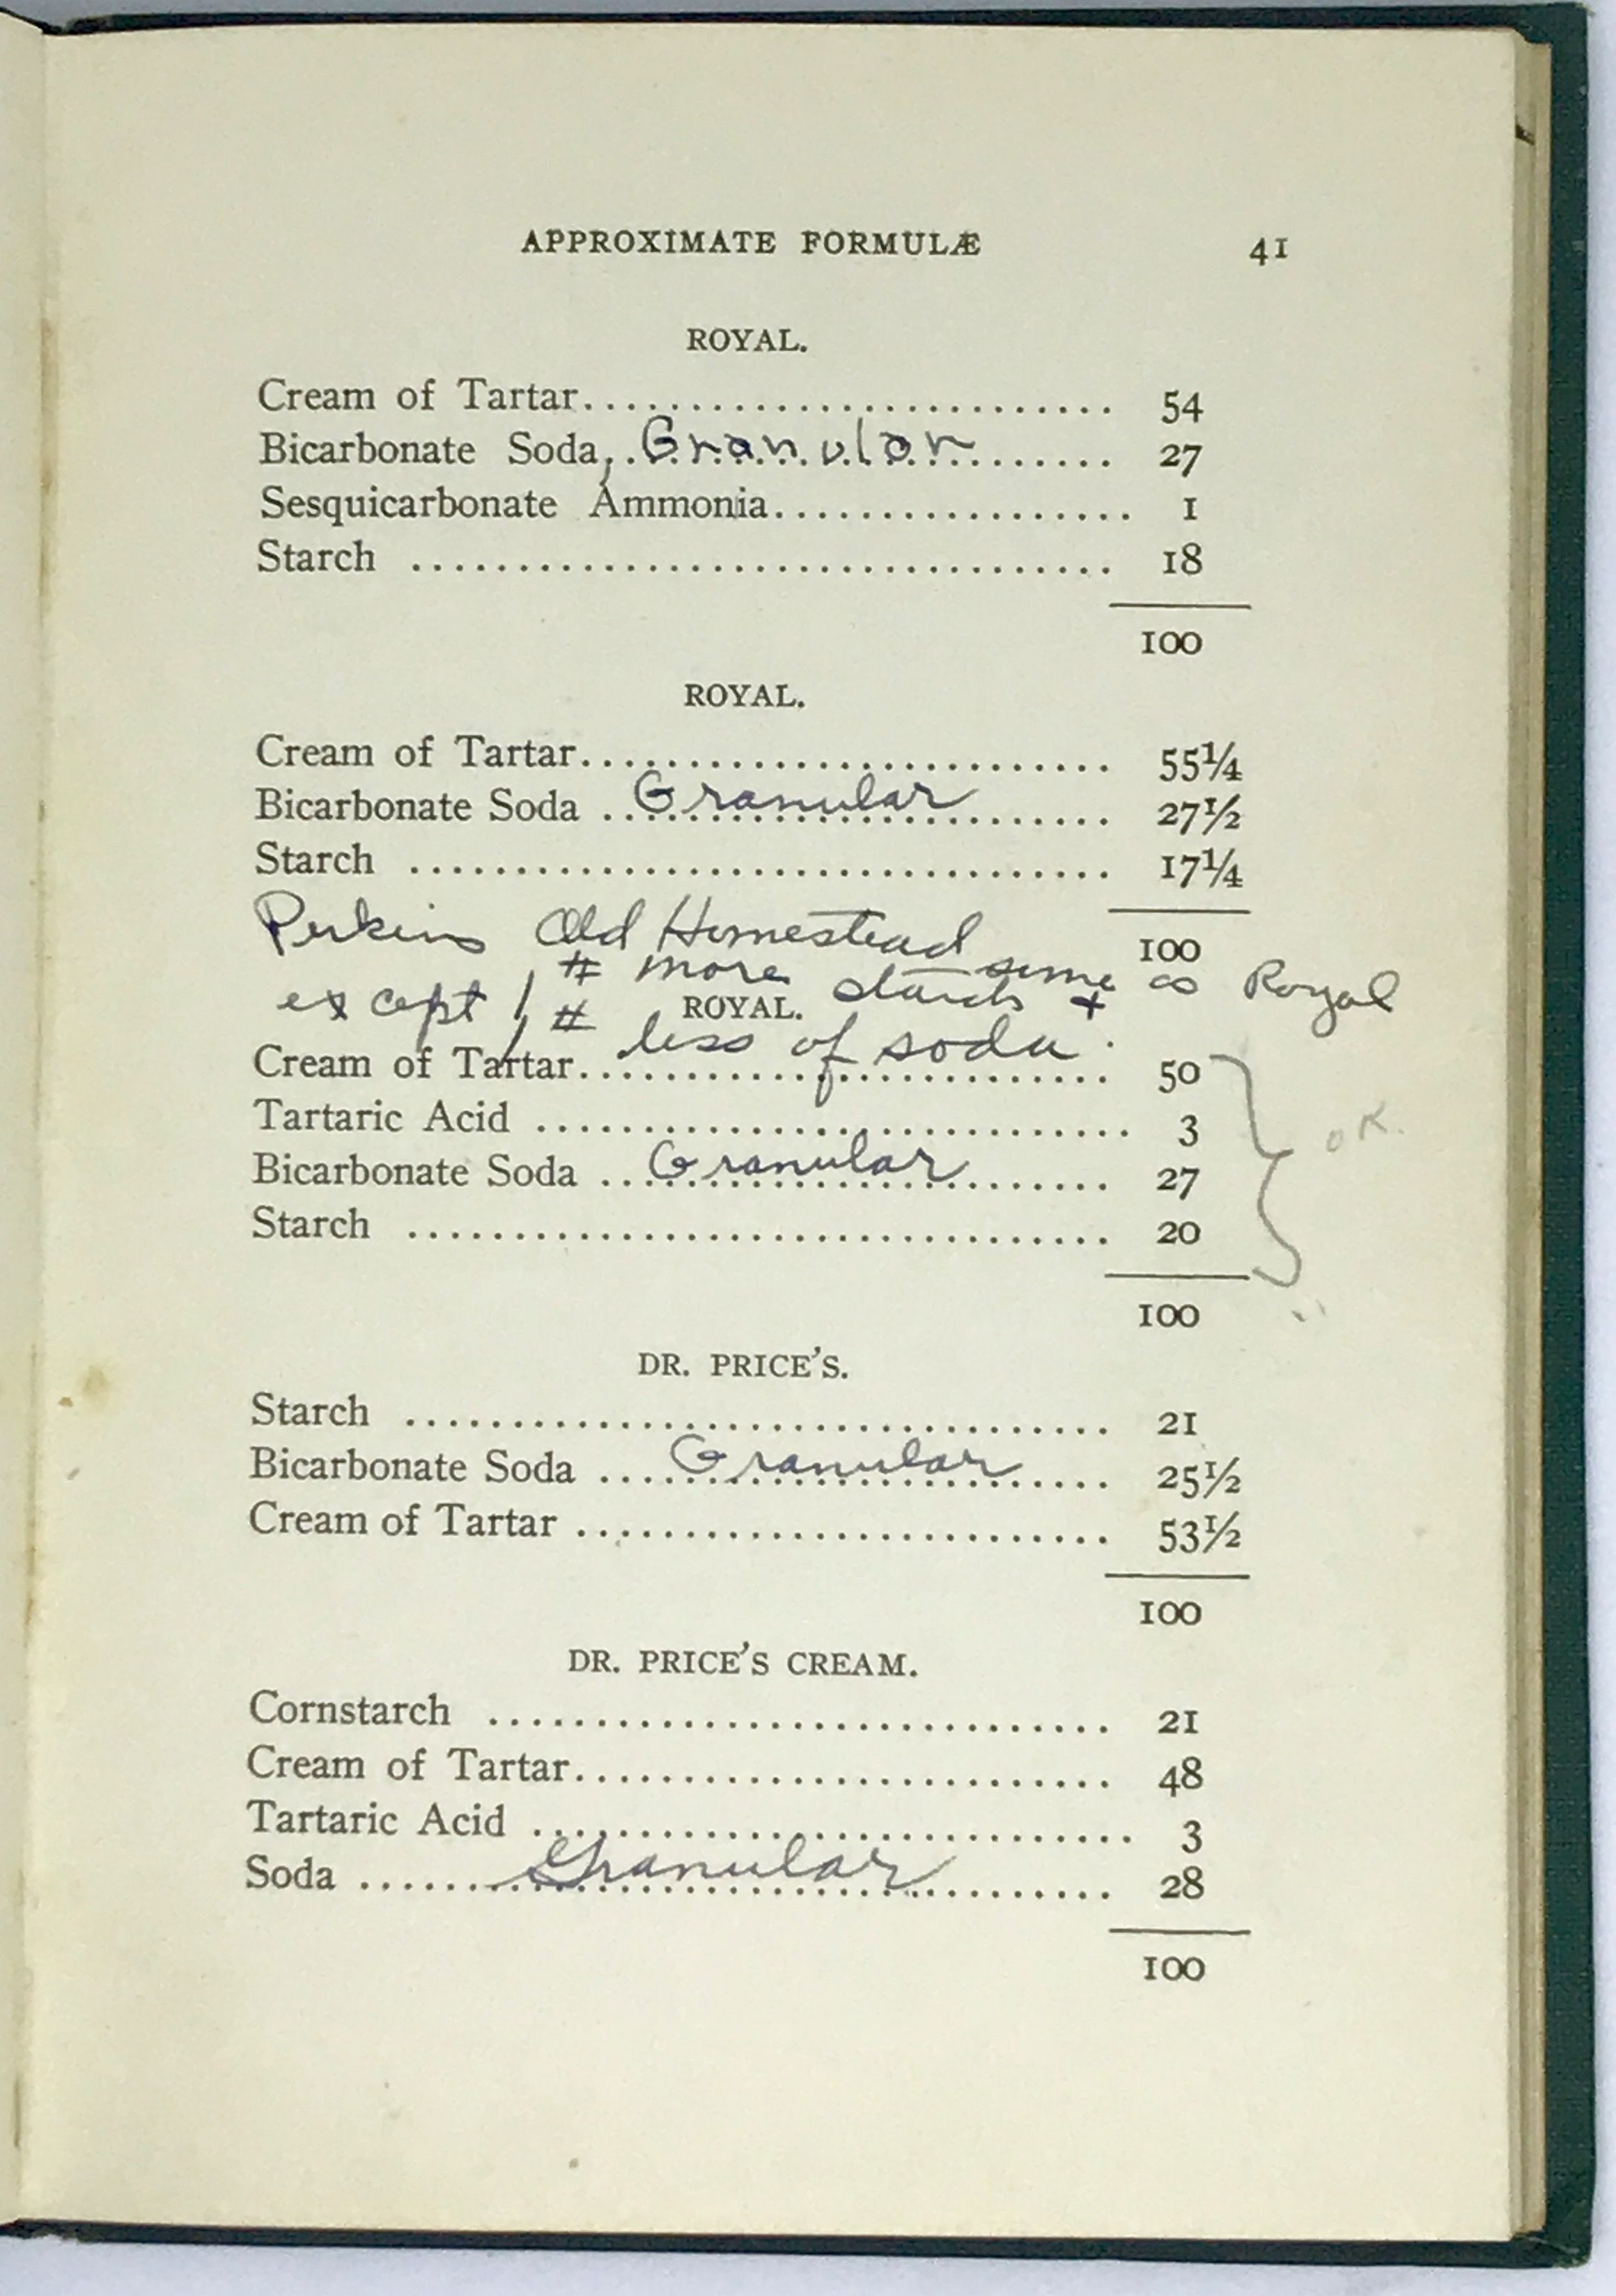 APPROXIMATE FORMULÆ 41
ROYAL.
Cream of Tartar.......................... 54
Bicarbonate Soda, Granular 27
Sesquicarbonate Ammonia................. 1
Starch ................................. 18
100
ROYAL.
Cream of Tartar.......................... 55¼
Bicarbonate Soda Granular 27½
Starch ................................. 17¼
100
Perkins Old Homestead same as Royal
except 1 # more starch +
1 # less of soda.
ROYAL.
Cream of Tartar.......................... 50
Tartaric Acid ............................ 3
OK.
Bicarbonate Soda Granular 27
Starch ................................. 20
100
DR. PRICE'S.
Starch ................................. 21
Bicarbonate Soda Granular 25½
Cream of Tartar ......................... 53½
100
DR. PRICE'S CREAM.
Cornstarch ............................. 21
Cream of Tartar.......................... 48
Tartaric Acid ............................ 3
Soda Granular 28
100